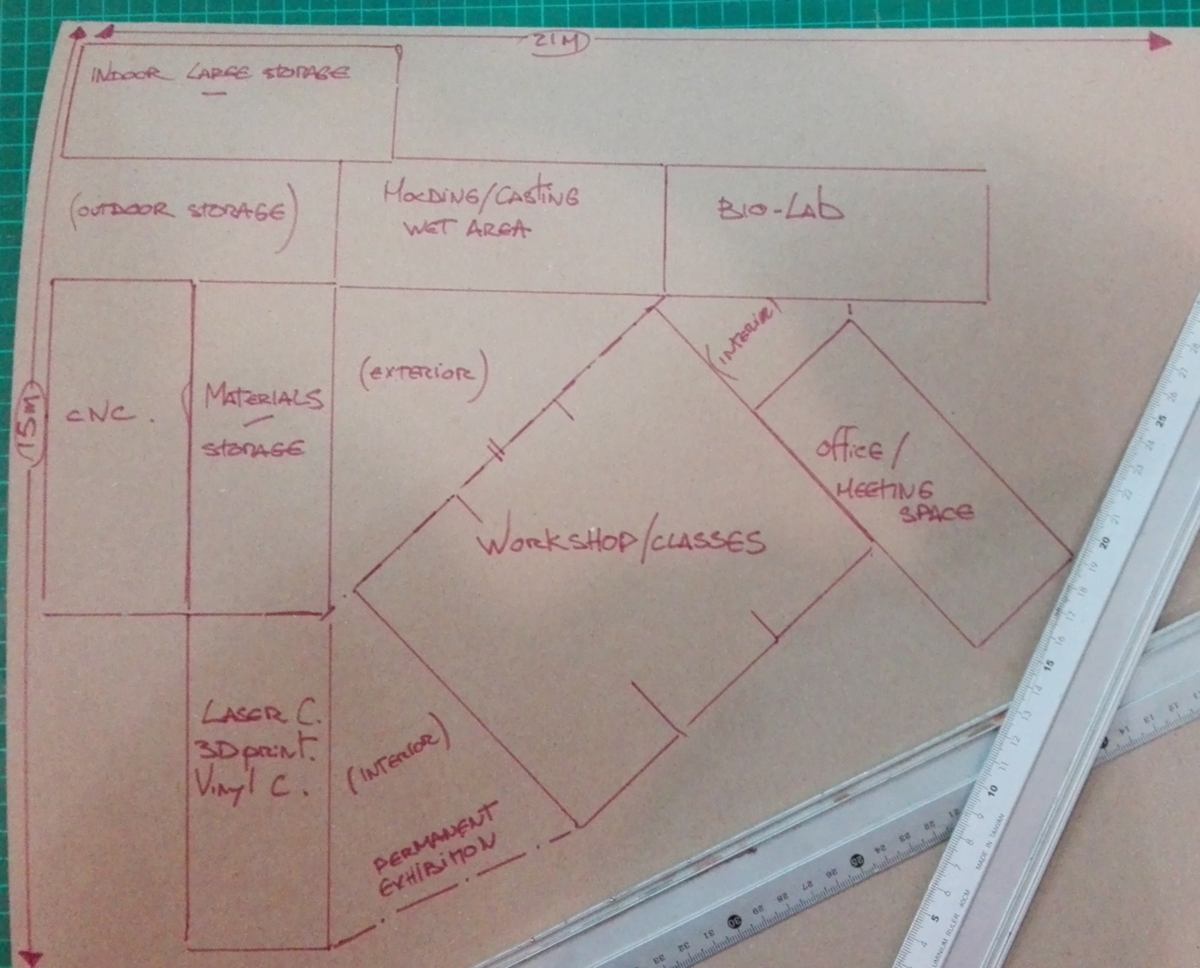 21M
INDOOR LARGE STORAGE
(OUTDOOR STORAGE)
MOLDING/CASTING
WET AREA
BIO-LAB
15M
CNC.
MATERIALS
STORAGE
(EXTERIOR)
(INTERIOR)
OFFICE/
MEETING
SPACE
WORKSHOP/CLASSES
LASER C.
3D print.
Vinyl C.
(INTERIOR)
PERMANENT
EXHIBITION
MADE IN TAIWAN
25
20
15
10
5
30